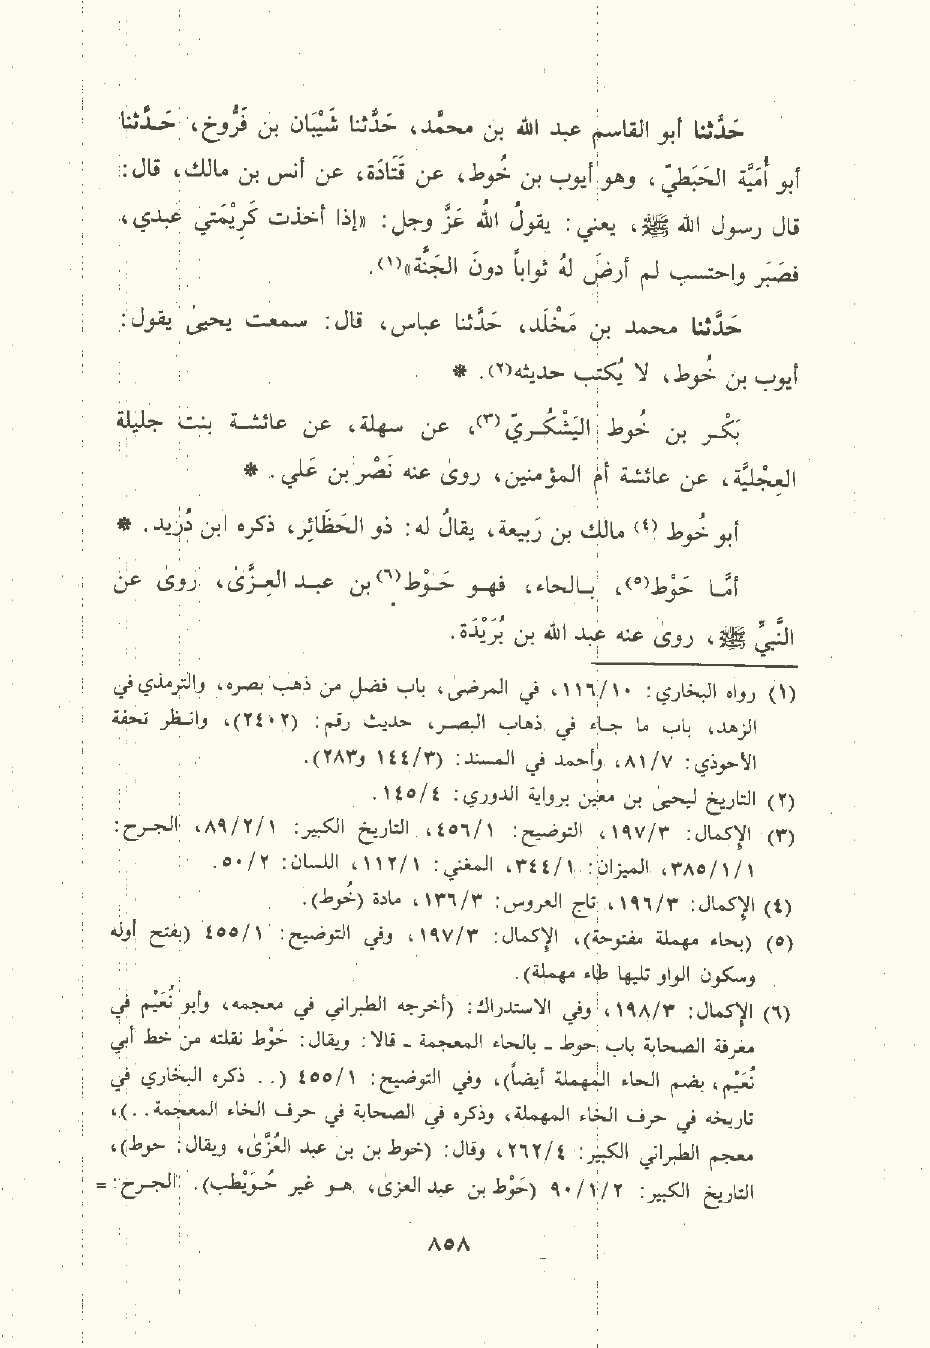 حَدَّثنا أبو القاسم عبد الله بن محمَّد، حَدَّثنا شَيْبَان بن فَرُّوخ، حَدَّثنا
أبو أُمَيَّة الحَبَطيّ، وهو أيوب بن خُوط، عن قَتَادَة، عن أنس بن مالك، قال:
قال رسول الله ﷺ، يعني: يقولُ اللهُ عَزَّ وجل: «إذا أخذت كَرِيْمَتي عبدي،
فصَبَر واحتسب لم أرضَ لهُ ثواباً دونَ الجَنَّة»(١).
حَدَّثنا محمد بن مَخْلَد، حَدَّثنا عباس، قال: سمعت يحيىٰ يقول:
أيوب بن خُوط، لا يُكتب حديثه(٢). *
بَكْر بن خُوط اليَشْكُريّ(٣)، عن سهلة، عن عائشة بنت جليلة
العِجْليَّة، عن عائشة أم المؤمنين، روىٰ عنه نَصْر بن عَلي. *
أبو خُوط(٤) مالك بن رَبيعة، يقالُ له: ذو الحَظَائِر، ذكره ابن دُرَيد. *
أمَّا حَوْط(٥)، بالحاء، فهو حَوْط(٦) بن عبد العِزَّىٰ، روىٰ عن
النَّبيِّ ﷺ، روىٰ عنه عبد الله بن بُرَيْدَة.
(١) رواه البخاري: ١١٦/١٠، في المرضىٰ، باب فضل من ذهب بصره، والترمذي في
الزهد، باب ما جاء في ذهاب البصر، حديث رقم: (٢٤٠٢)، وانظر تحفة
الأحوذي: ٨١/٧، وأحمد في المسند: (١٤٤/٣ و٢٨٣).
(٢) التاريخ ليحيىٰ بن معين برواية الدوري: ١٤٥/٤.
(٣) الإكمال: ١٩٧/٣، التوضيح: ٤٥٦/١، التاريخ الكبير: ٨٩/٢/١، الجرح:
٣٨٥/١/١، الميزان: ٣٤٤/١، المغني: ١١٢/١، اللسان: ٥٠/٢.
(٤) الإكمال: ١٩٦/٣، تاج العروس: ١٣٦/٣، مادة (خُوط).
(٥) (بحاء مهملة مفتوحة)، الإكمال: ١٩٧/٣، وفي التوضيح: ٤٥٥/١ (بفتح أوله
وسكون الواو تليها طاء مهملة).
(٦) الإكمال: ١٩٨/٣، وفي الاستدراك: (أخرجه الطبراني في معجمه، وأبو نُعَيْم في
معرفة الصحابة باب حوط - بالحاء المعجمة - قالا: ويقال: حَوْط نقلته من خط أبي
نُعَيْم، بضم الحاء المهملة أيضاً)، وفي التوضيح: ٤٥٥/١ (.. ذكره البخاري في
تاريخه في حرف الحاء المهملة، وذكره في الصحابة في حرف الخاء المعجمة..)،
معجم الطبراني الكبير: ٢٦٢/٤، وقال: (خوط بن بن عبد العُزَّىٰ، ويقال: حوط)،
التاريخ الكبير: ٩٠/١/٢ (حَوْط بن عبد العزىٰ، هو غير حُوَيْطب). الجرح: =
٨٥٨